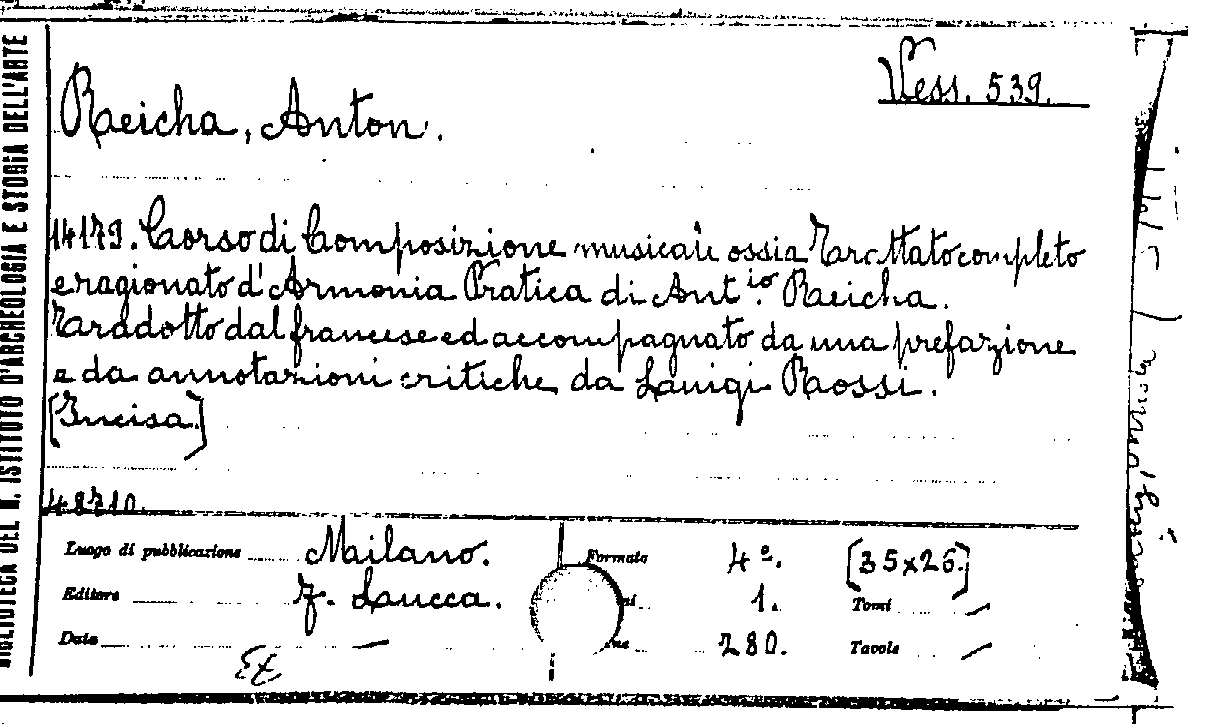 BIBLIOTECA DEL R. ISTITUTO D'ARCHEOLOGIA E STORIA DELL'ARTE
Vess. 539.
Reicha, Anton.
14179. Corso di Composizione musicale ossia Trattato completo
e ragionato d'Armonia Pratica di Ant.io Reicha.
Tradotto dal francese ed accompagnato da una prefazione
e da annotazioni critiche da Luigi Rossi.
[Incisa.]
48710.
Luogo di pubblicazione Milano. Formato 4º. [35x26.]
Editore F. Lucca. 1. Tomi /
Data — 280. Tavole /